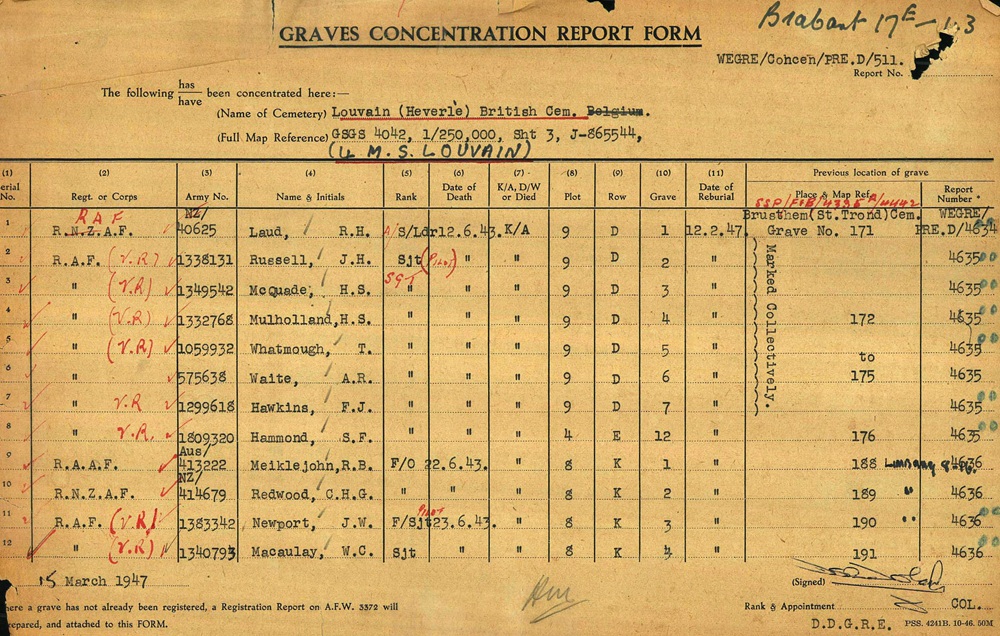 Brabant 17E - 1-3
GRAVES CONCENTRATION REPORT FORM
WEGRE/Cohcen/PRE.D/511.
Report No.
The following has/have been concentrated here:—
(Name of Cemetery) Louvain (Heverlè) British Cem. Belgium.
(Full Map Reference) GSGS 4042, 1/250,000, Sht 3, J-865544,
(4 M.S. LOUVAIN)
(1) (2) (3) (4) (5) (6) (7) (8) (9) (10) (11) Previous location of grave
erial No. Regt. or Corps Army No. Name & Initials Rank Date of Death K/A, D/W or Died Plot Row Grave Date of Reburial Place & Map Ref. Report Number
RAF NZ/ Brusthem (St.Trond) Cem. WEGRE/
1 R.N.Z.A.F. 40625 Laud, R.H. A/ S/Ldr 12.6.43. K/A 9 D 1 12.2.47. Grave No. 171 PRE.D/4634
2 R.A.F. (V.R) 1338131 Russell, J.H. Sjt (PILOT) " " 9 D 2 " 4635
3 " (V.R) 1349542 McQuade, H.S. SGT " " " 9 D 3 " 4635
4 " (V.R) 1332768 Mulholland, H.S. " " " 9 D 4 " 172 4635
5 " (V.R) 1059932 Whatmough, T. " " " 9 D 5 " to 4635
6 " 575638 Waite, A.R. " " " 9 D 6 " 175 4635
Marked Collectively.
7 " V.R 1299618 Hawkins, F.J. " " " 9 D 7 " 4635
8 " V.R. 1809320 Hammond, S.F. " " " 4 E 12 " 176 4635
Aus/
9 R.A.A.F. 413222 Meiklejohn, R.B. F/O 22.6.43. " 8 K 1 " 188 4636
NZ/
10 R.N.Z.A.F. 414679 Redwood, C.H.G. " " " 8 K 2 " 189 " 4636
11 R.A.F. (V.R) 1383342 Newport, J.W. F/Sjt PILOT 23.6.43. " 8 K 3 " 190 " 4636
12 " (V.R) 1340793 Macaulay, W.C. Sjt " " 8 K 4 " 191 4636
15 March 1947
(Signed)
here a grave has not already been registered, a Registration Report on A.F.W. 3372 will
repared, and attached to this FORM.
Rank & Appointment COL.
D.D.G.R.E. PSS. 4241B. 10-46. 50M